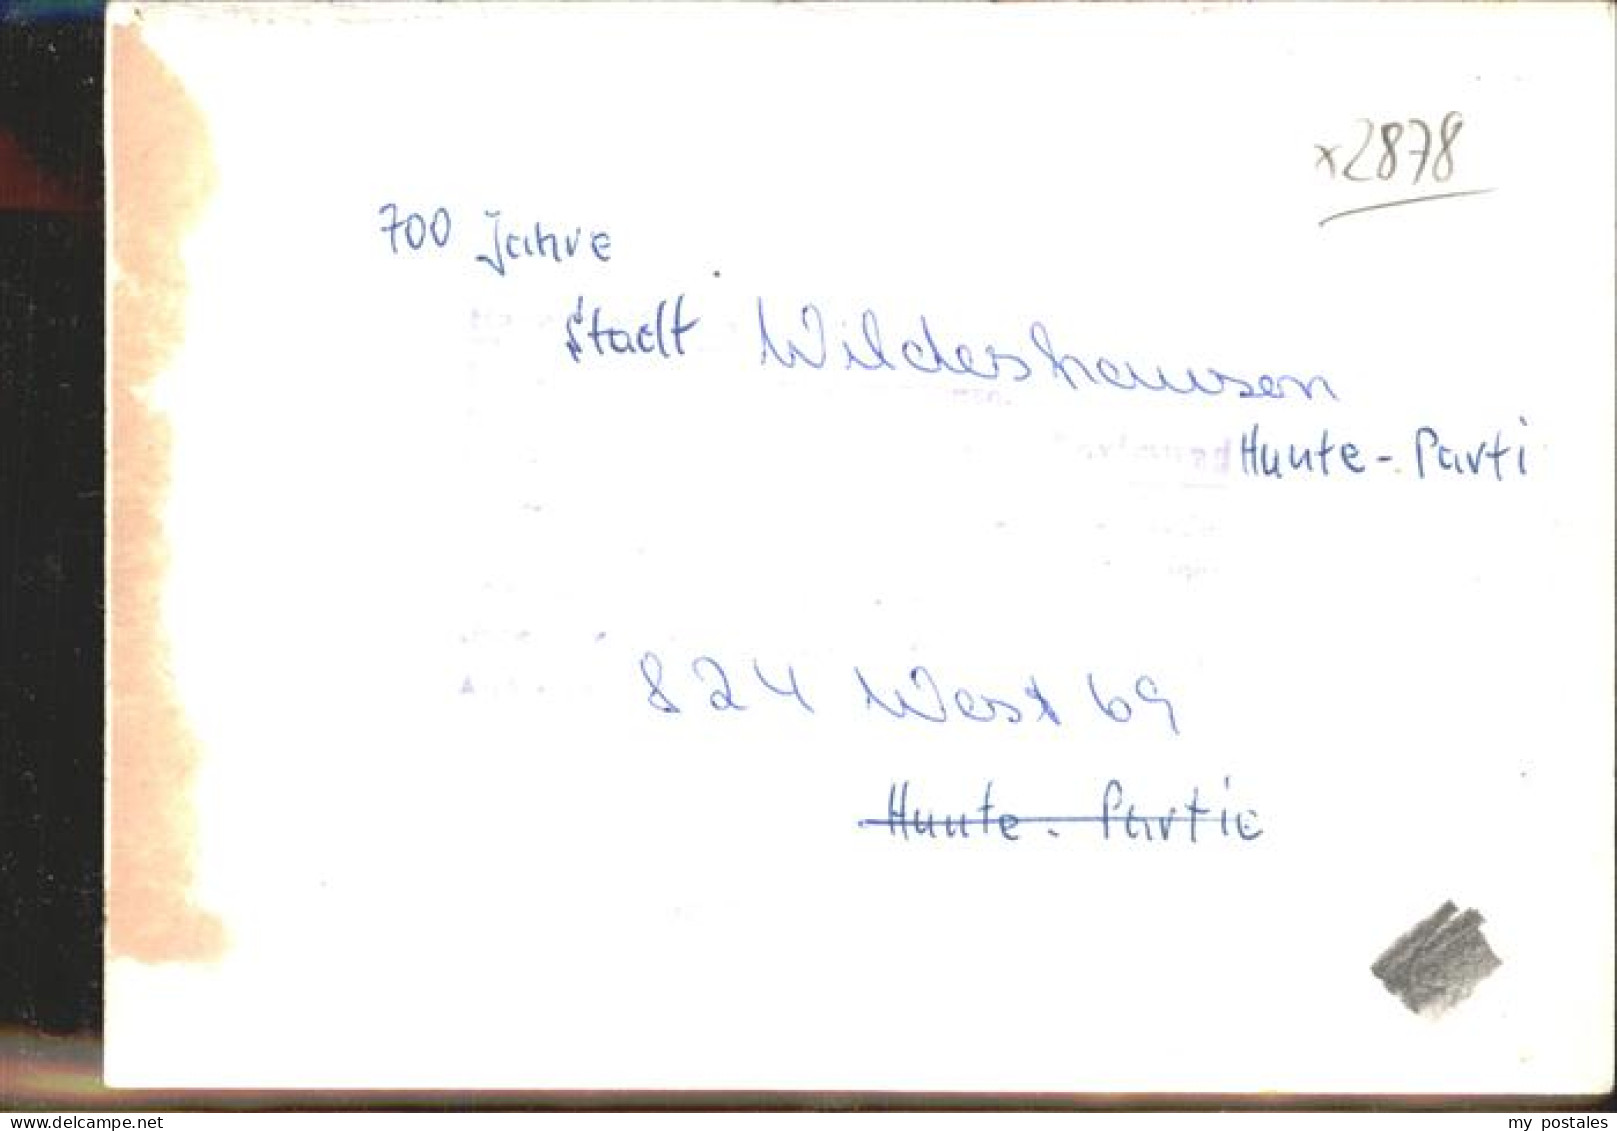 x2878
700 Jahre
Stadt Wildeshausen
Hunte - Parti
824 West 69
Hunte - Partie
delcampe.net
my_postales